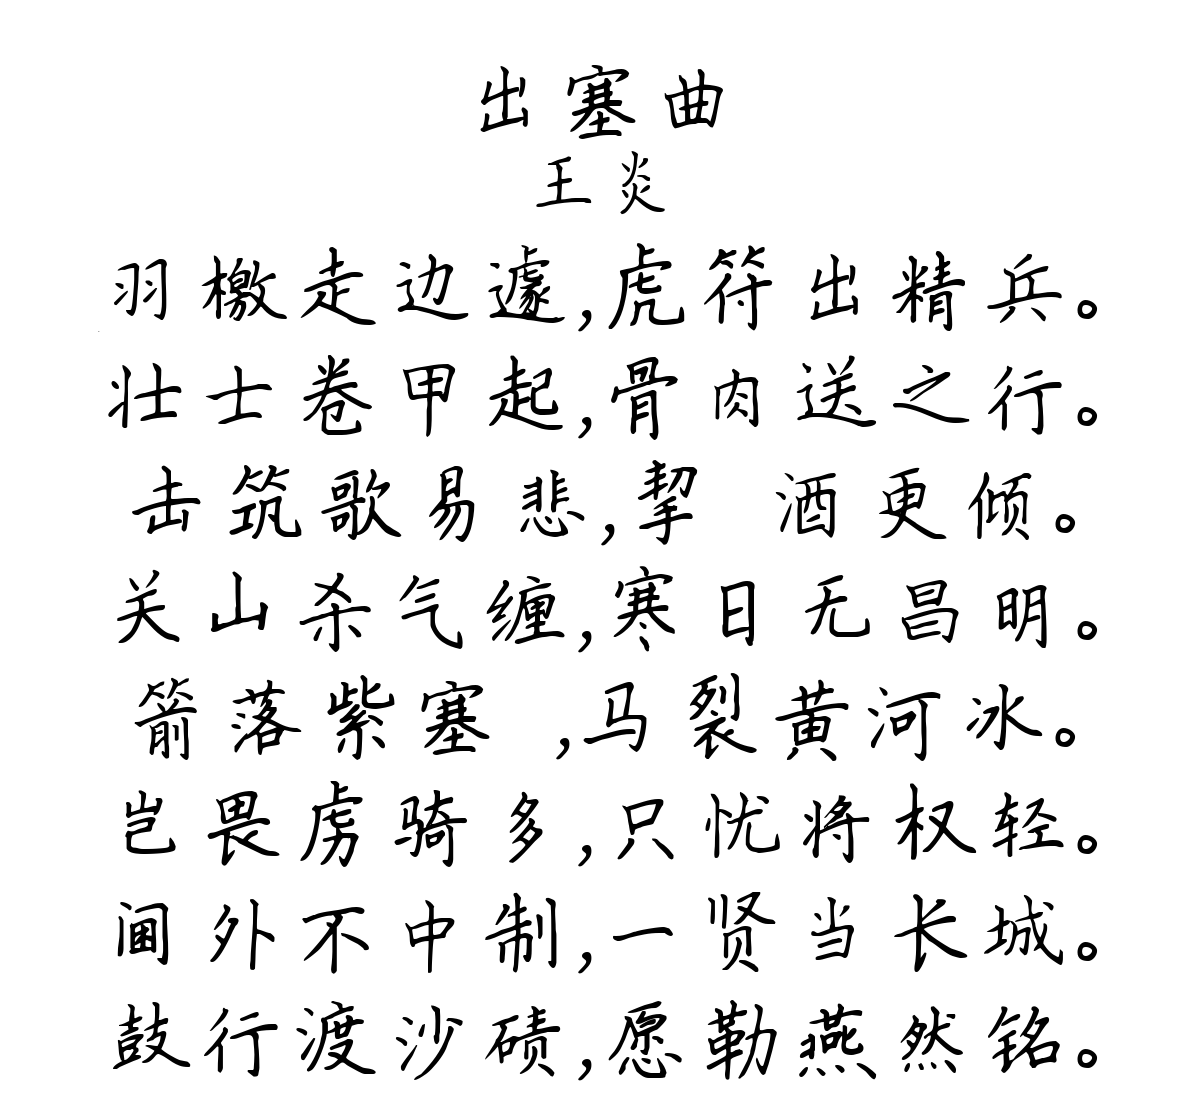 出塞曲
王炎
羽檄走边遽,虎符出精兵。
壮士卷甲起,骨肉送之行。
击筑歌易悲,挈 酒更倾。
关山杀气缠,寒日无昌明。
箭落紫塞 ,马裂黄河冰。
岂畏虏骑多,只忧将权轻。
阃外不中制,一贤当长城。
鼓行渡沙碛,愿勒燕然铭。